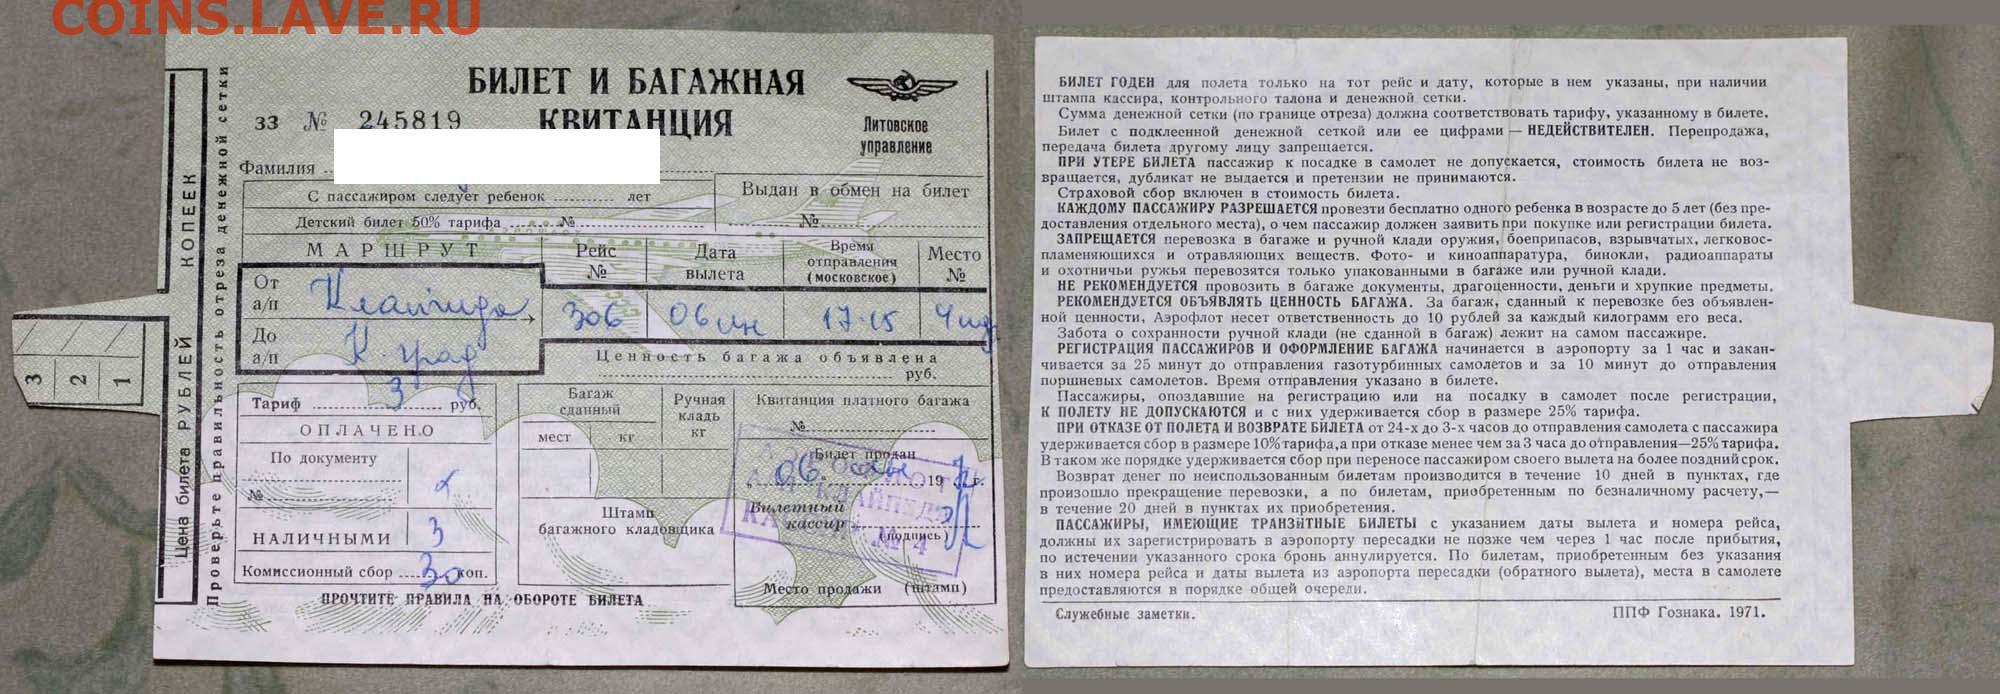 COINS.LAVE.RU
БИЛЕТ И БАГАЖНАЯ
КВИТАНЦИЯ
33 № 245819
Литовское
управление
Фамилия
С пассажиром следует ребенок лет
Детский билет 50% тарифа №
Выдан в обмен на билет
№
МАРШРУТ
Рейс
№
Дата
вылета
Время
отправления
(московское)
Место
№
От
а/п
Клайпеда
До
а/п
К-град
306
06
17-15
Ценность багажа объявлена
руб.
Тариф 3 руб.
ОПЛАЧЕНО
По документу
№
НАЛИЧНЫМИ 3
Комиссионный сбор 30 коп.
Багаж
сданный
мест кг
Ручная
кладь
кг
Штамп
багажного кладовщика
Квитанция платного багажа
№
Билет продан
06 19 г.
Билетный
кассир
(подпись)
Место продажи (штамп)
КЛАЙПЕДА
№ 4
ПРОЧТИТЕ ПРАВИЛА НА ОБОРОТЕ БИЛЕТА
Цена билета РУБЛЕЙ КОПЕЕК
Проверьте правильность отреза денежной сетки
3 2 1
БИЛЕТ ГОДЕН для полета только на тот рейс и дату, которые в нем указаны, при наличии
штампа кассира, контрольного талона и денежной сетки.
Сумма денежной сетки (по границе отреза) должна соответствовать тарифу, указанному в билете.
Билет с подклеенной денежной сеткой или ее цифрами — НЕДЕЙСТВИТЕЛЕН. Перепродажа,
передача билета другому лицу запрещается.
ПРИ УТЕРЕ БИЛЕТА пассажир к посадке в самолет не допускается, стоимость билета не воз-
вращается, дубликат не выдается и претензии не принимаются.
Страховой сбор включен в стоимость билета.
КАЖДОМУ ПАССАЖИРУ РАЗРЕШАЕТСЯ провезти бесплатно одного ребенка в возрасте до 5 лет (без пре-
доставления отдельного места), о чем пассажир должен заявить при покупке или регистрации билета.
ЗАПРЕЩАЕТСЯ перевозка в багаже и ручной клади оружия, боеприпасов, взрывчатых, легковос-
пламеняющихся и отравляющих веществ. Фото- и киноаппаратура, бинокли, радиоаппараты
и охотничьи ружья перевозятся только упакованными в багаже или ручной клади.
НЕ РЕКОМЕНДУЕТСЯ провозить в багаже документы, драгоценности, деньги и хрупкие предметы.
РЕКОМЕНДУЕТСЯ ОБЪЯВЛЯТЬ ЦЕННОСТЬ БАГАЖА. За багаж, сданный к перевозке без объявлен-
ной ценности, Аэрофлот несет ответственность до 10 рублей за каждый килограмм его веса.
Забота о сохранности ручной клади (не сданной в багаж) лежит на самом пассажире.
РЕГИСТРАЦИЯ ПАССАЖИРОВ И ОФОРМЛЕНИЕ БАГАЖА начинается в аэропорту за 1 час и закан-
чивается за 25 минут до отправления газотурбинных самолетов и за 10 минут до отправления
поршневых самолетов. Время отправления указано в билете.
Пассажиры, опоздавшие на регистрацию или на посадку в самолет после регистрации,
К ПОЛЕТУ НЕ ДОПУСКАЮТСЯ и с них удерживается сбор в размере 25% тарифа.
ПРИ ОТКАЗЕ ОТ ПОЛЕТА И ВОЗВРАТЕ БИЛЕТА от 24-х до 3-х часов до отправления самолета с пассажира
удерживается сбор в размере 10% тарифа, а при отказе менее чем за 3 часа до отправления—25% тарифа.
В таком же порядке удерживается сбор при переносе пассажиром своего вылета на более поздний срок.
Возврат денег по неиспользованным билетам производится в течение 10 дней в пунктах, где
произошло прекращение перевозки, а по билетам, приобретенным по безналичному расчету,—
в течение 20 дней в пунктах их приобретения.
ПАССАЖИРЫ, ИМЕЮЩИЕ ТРАНЗИТНЫЕ БИЛЕТЫ с указанием даты вылета и номера рейса,
должны их зарегистрировать в аэропорту пересадки не позже чем через 1 час после прибытия,
по истечении указанного срока бронь аннулируется. По билетам, приобретенным без указания
в них номера рейса и даты вылета из аэропорта пересадки (обратного вылета), места в самолете
предоставляются в порядке общей очереди.
Служебные заметки. ППФ Гознака. 1971.